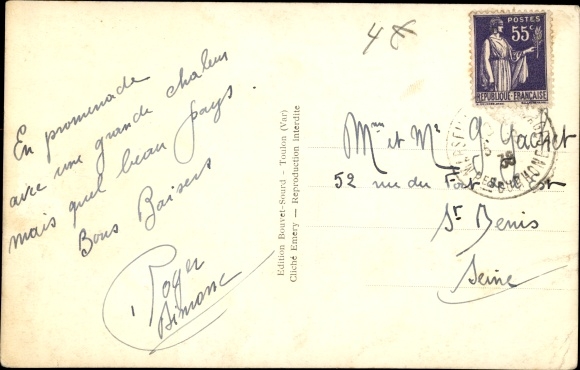 En promenade
avec une grande chaleur
mais quel beau pays
Bons Baisers
Roger
Simone
Edition Bouvet-Sourd — Toulon (Var)
Cliché Entéry — Reproduction Interdite
4
POSTES
55c
REPUBLIQUE FRANÇAISE
Mme et Mr G. Gachet
52 rue du Fort de l'Est
St Denis
Seine